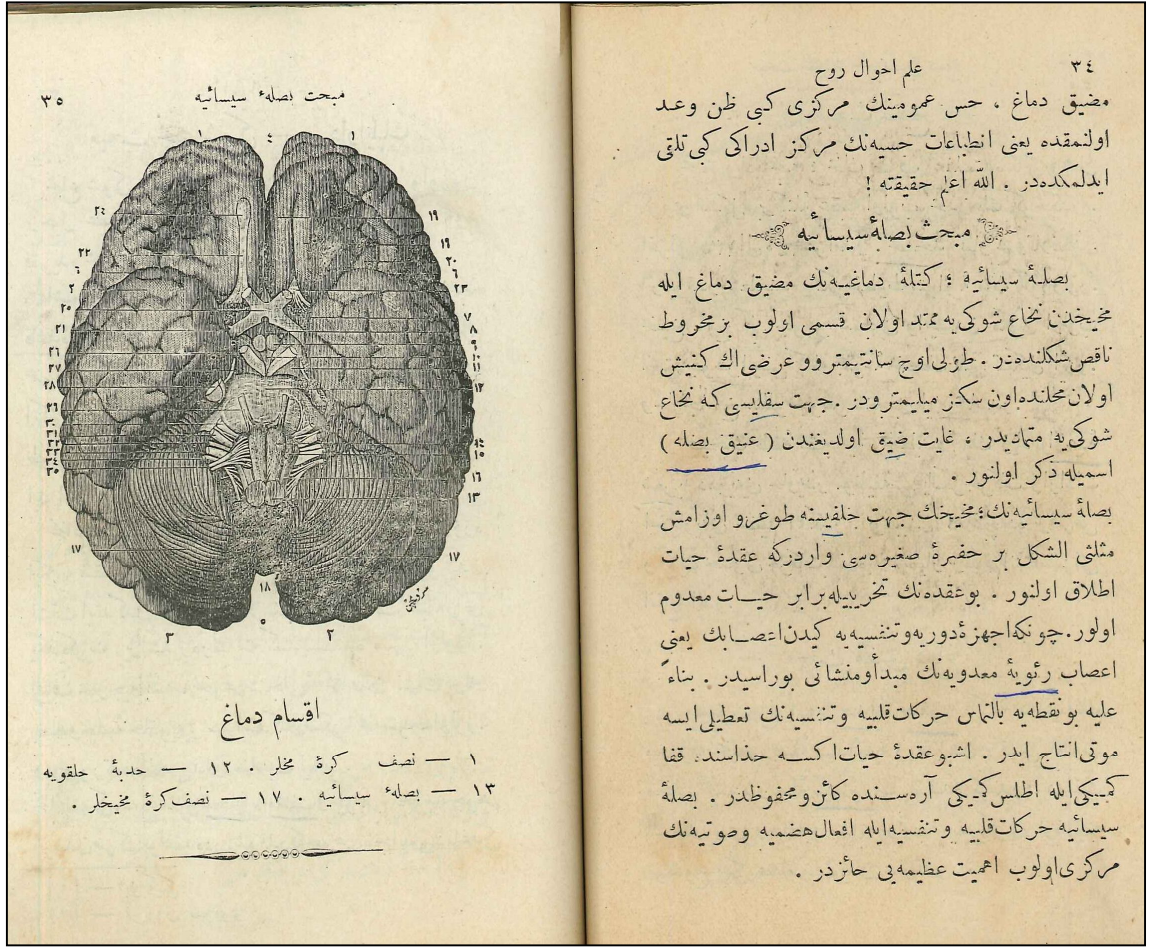 ٣٤
علم احوال روح
مضيق دماغ ، حس عمومينك مركزى كبى ظن وعد
اولنمقده يعنى انطباعات حسيه‌نك مركز ادراكى كبى تلقى
ايدلمكده‌در . الله اعلم حقيقته !
مبحث بصلهٔ سيسائيه
بصلهٔ سيسائيه ؛ كتلهٔ دماغيه‌نك مضيق دماغ ايله
مخيخدن نخاع شوكى‌يه ممتد اولان قسمى اولوب بر مخروط
ناقص شكلنده‌در . طولى اوچ سانتيمترو و عرضى اك كنيش
اولان محلنده اون سكز ميليمترودر . جهت سفليسى كه نخاع
شوكى‌يه متماديدر ، غايت ضيق اولديغندن ( عنيق بصله )
اسميله ذكر اولنور .
بصلهٔ سيسائيه‌نك ؛ مخيخك جهت خلفيسنه طوغرو اوزامش
مثلثى الشكل بر حفيرهٔ صغيره‌سى واردركه عقدهٔ حيات
اطلاق اولنور . بو عقده‌نك تخريبيله برابر حيات معدوم
اولور . چونكه اجهزهٔ دوريه و تنفسيه‌يه كيدن اعصابك يعنى
اعصاب رئويهٔ معدويه‌نك مبدأ و منشائى بوراسيدر . بناءً
عليه بو نقطه‌يه بالتماس حركات قلبيه و تنفسيه‌نك تعطيلى ايسه
موتى انتاج ايدر . اشبو عقدهٔ حيات اكسه حذاسنده قفا
كميكى ايله اطلس كميكى آره‌سنده كائن و محفوظدر . بصلهٔ
سيسائيه حركات قلبيه و تنفسيه ايله افعال هضميه و صوتيه‌نك
مركزى اولوب اهميت عظيمه‌يى حائزدر .
مبحث بصلهٔ سيسائيه
٣٥
١ ٤ ١
٢٤ ١٩
٢٢ ١٩
٦ ٢٠
٢ ٦
٢٥ ٢٣
٢١ ٧
٢٦ ٨
٢٧ ٩
٢٨ ١٠
٢٦ ١١
٣٠ ١٢
٣١ ١٤
٣٢ ١٥
٣٣ ١٦
٣٤ ١٣
٣٥
١٧ ١٧
١٨
٣ ٥ ٢
اقسام دماغ
١ — نصف كرهٔ مخلر . ١٢ — حدبهٔ حلقويه
١٣ — بصلهٔ سيسائيه . ١٧ — نصف كرهٔ مخيخلر .